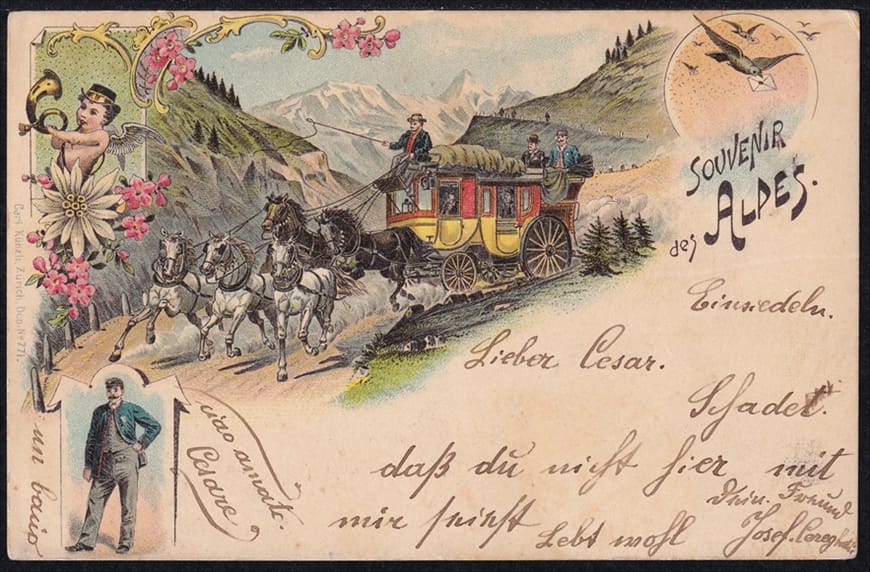 SOUVENIR
des ALPES.
Carl Künzli, Zürich, Dep. No 771.
Einsiedeln.
Lieber Cesar.
Schadet.
daß du nicht hier mit
mir seinst
Lebt wohl
Dein Freund
Josef
ciao amato
Cesare
un